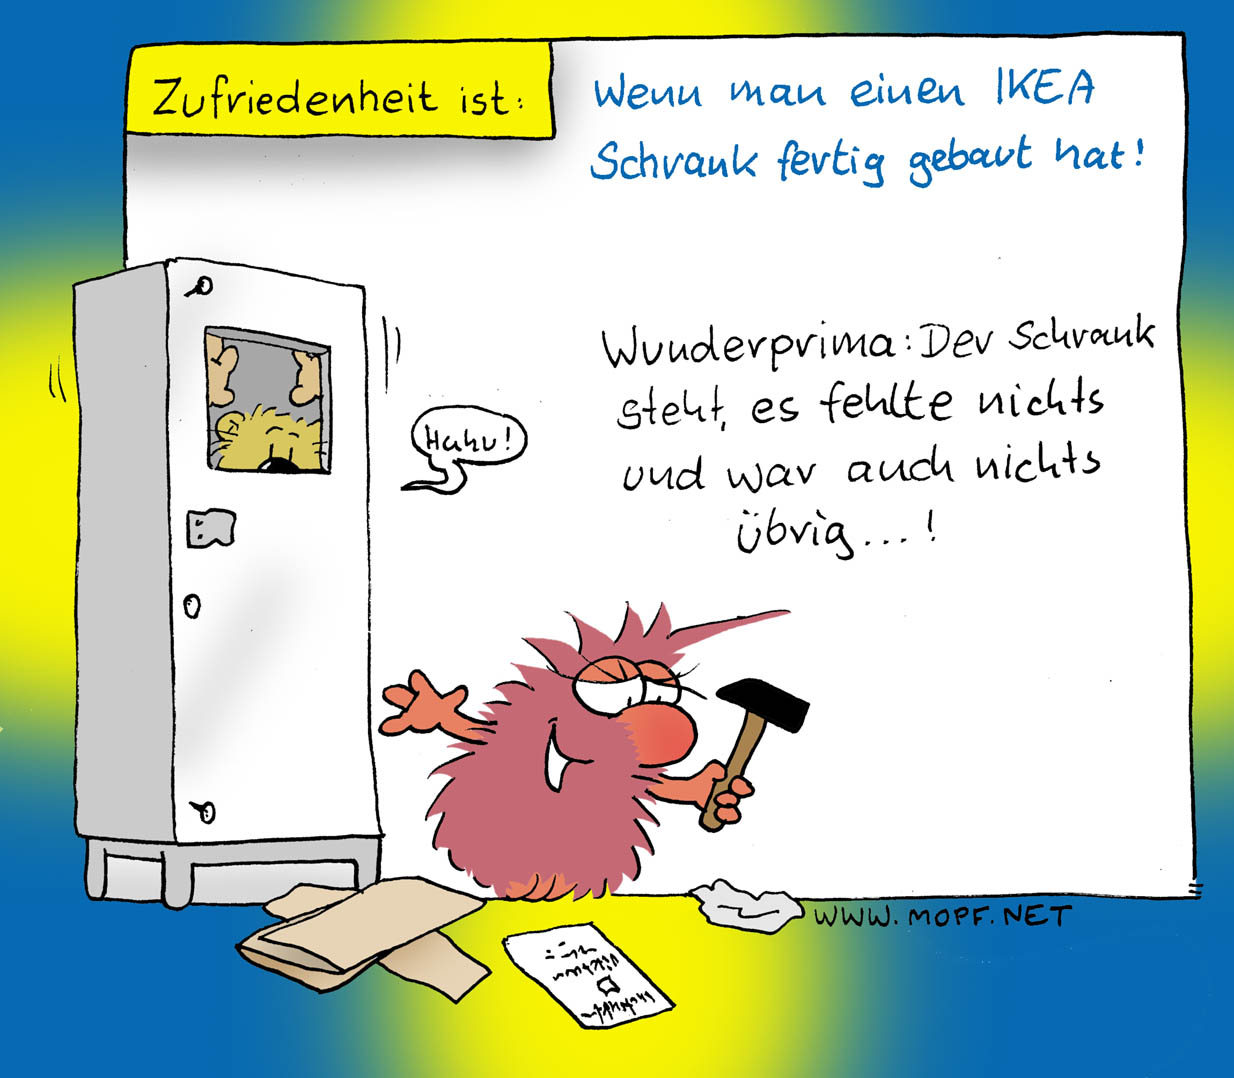 Zufriedenheit ist:
Wenn man einen IKEA
Schrank fertig gebaut hat!
Wunderprima: Der Schrank
steht, es fehlte nichts
und war auch nichts
übrig...!
Huhu!
WWW.MOPF.NET